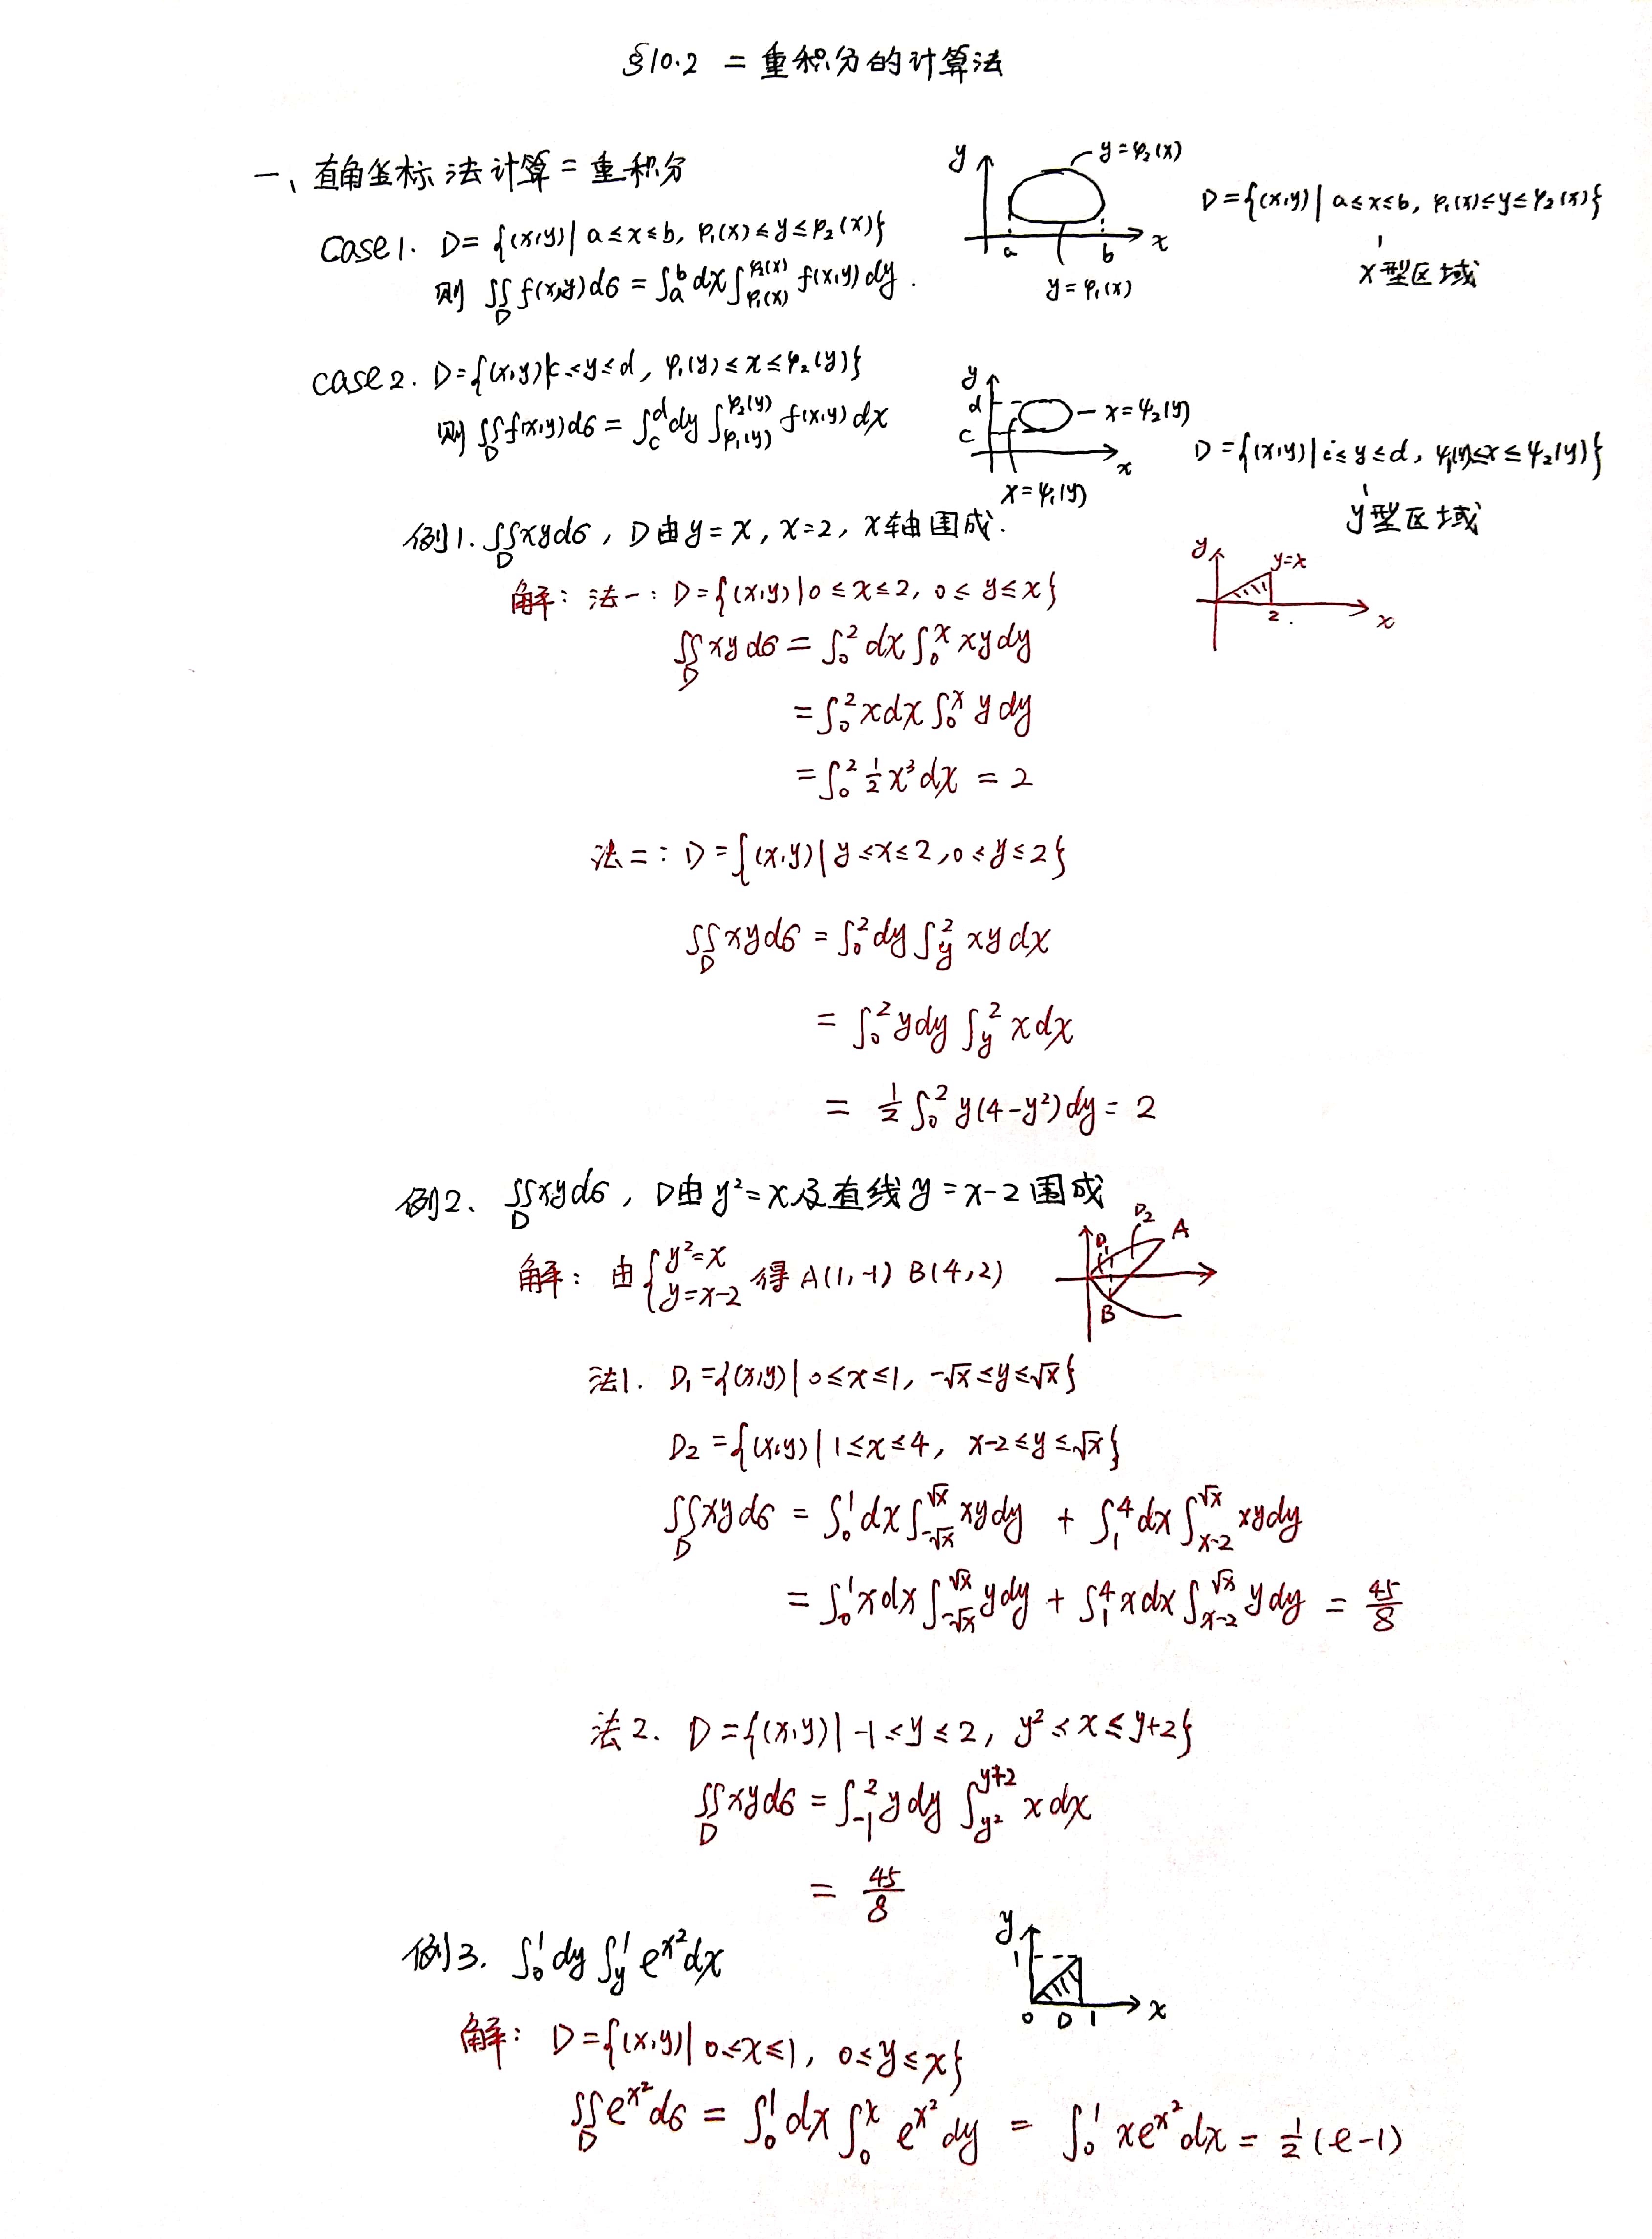 §10.2 二重积分的计算法
一、直角坐标法计算二重积分
case 1. D={(x,y)| a≤x≤b, φ₁(x)≤y≤φ₂(x)}
则 ∬_D f(x,y)dσ = ∫_a^b dx ∫_{φ₁(x)}^{φ₂(x)} f(x,y)dy.
y
y=φ₂(x)
a b x
y=φ₁(x)
D={(x,y)| a≤x≤b, φ₁(x)≤y≤φ₂(x)}
X型区域
case 2. D={(x,y)|c≤y≤d, φ₁(y)≤x≤φ₂(y)}
则 ∬_D f(x,y)dσ = ∫_c^d dy ∫_{φ₁(y)}^{φ₂(y)} f(x,y)dx
y
d
x=ψ₂(y)
c
x
x=ψ₁(y)
D={(x,y)|c≤y≤d, ψ₁(y)≤x≤ψ₂(y)}
y型区域
例1. ∬_D xydσ, D由y=x, x=2, x轴围成.
y
y=x
2.
x
解: 法一: D={(x,y)|0≤x≤2, 0≤y≤x}
∬_D xydσ = ∫_0^2 dx ∫_0^x xydy
= ∫_0^2 xdx ∫_0^x ydy
= ∫_0^2 ½x³dx = 2
法二: D={(x,y)| y≤x≤2, 0≤y≤2}
∬_D xydσ = ∫_0^2 dy ∫_y^2 xydx
= ∫_0^2 ydy ∫_y^2 xdx
= ½ ∫_0^2 y(4-y²)dy = 2
例2、∬_D xydσ, D由y²=x及直线y=x-2围成
解: 由{y²=x
y=x-2 得 A(1,-1) B(4,2)
D₂
A
D₁
B
法1. D₁={(x,y)| 0≤x≤1, -√x≤y≤√x}
D₂={(x,y)| 1≤x≤4, x-2≤y≤√x}
∬_D xydσ = ∫_0^1 dx ∫_{-√x}^{√x} xydy + ∫_1^4 dx ∫_{x-2}^{√x} xydy
= ∫_0^1 xdx ∫_{-√x}^{√x} ydy + ∫_1^4 xdx ∫_{x-2}^{√x} ydy = 45/8
法2. D={(x,y)| -1≤y≤2, y²≤x≤y+2}
∬_D xydσ = ∫_{-1}^2 ydy ∫_{y²}^{y+2} xdx
= 45/8
例3. ∫_0^1 dy ∫_y^1 e^{x²}dx
y
1
0 D 1 x
解: D={(x,y)| 0≤x≤1, 0≤y≤x}
∬_D e^{x²}dσ = ∫_0^1 dx ∫_0^x e^{x²}dy = ∫_0^1 xe^{x²}dx = ½(e-1)